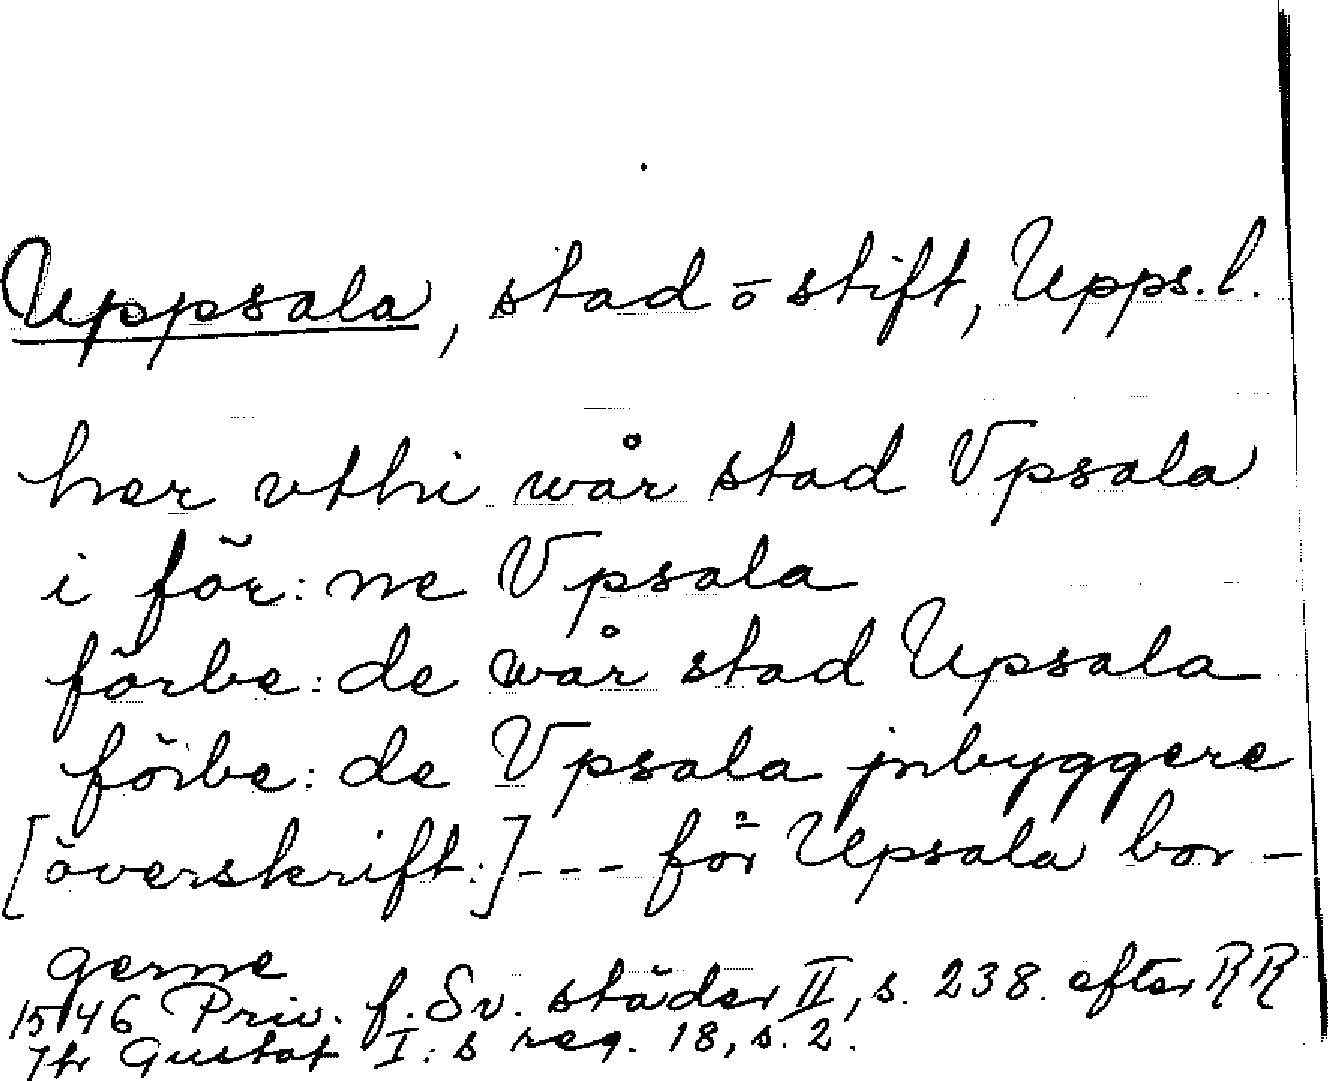 Uppsala, stad o stift, Upps.l.
her vthi wår stad Vpsala
i för:ne Vpsala
förbe:de wår stad Upsala
förbe:de Vpsala jnbyggere
[överskrift:] --- för Upsala bor-
gerne
1546 Priv. f. Sv. städer II, s. 238. efter RR
7/4 Gustaf I:s reg. 18, s. 2.